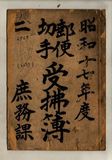 昭和十七年度
郵便
切手
受払簿
庶務課
二